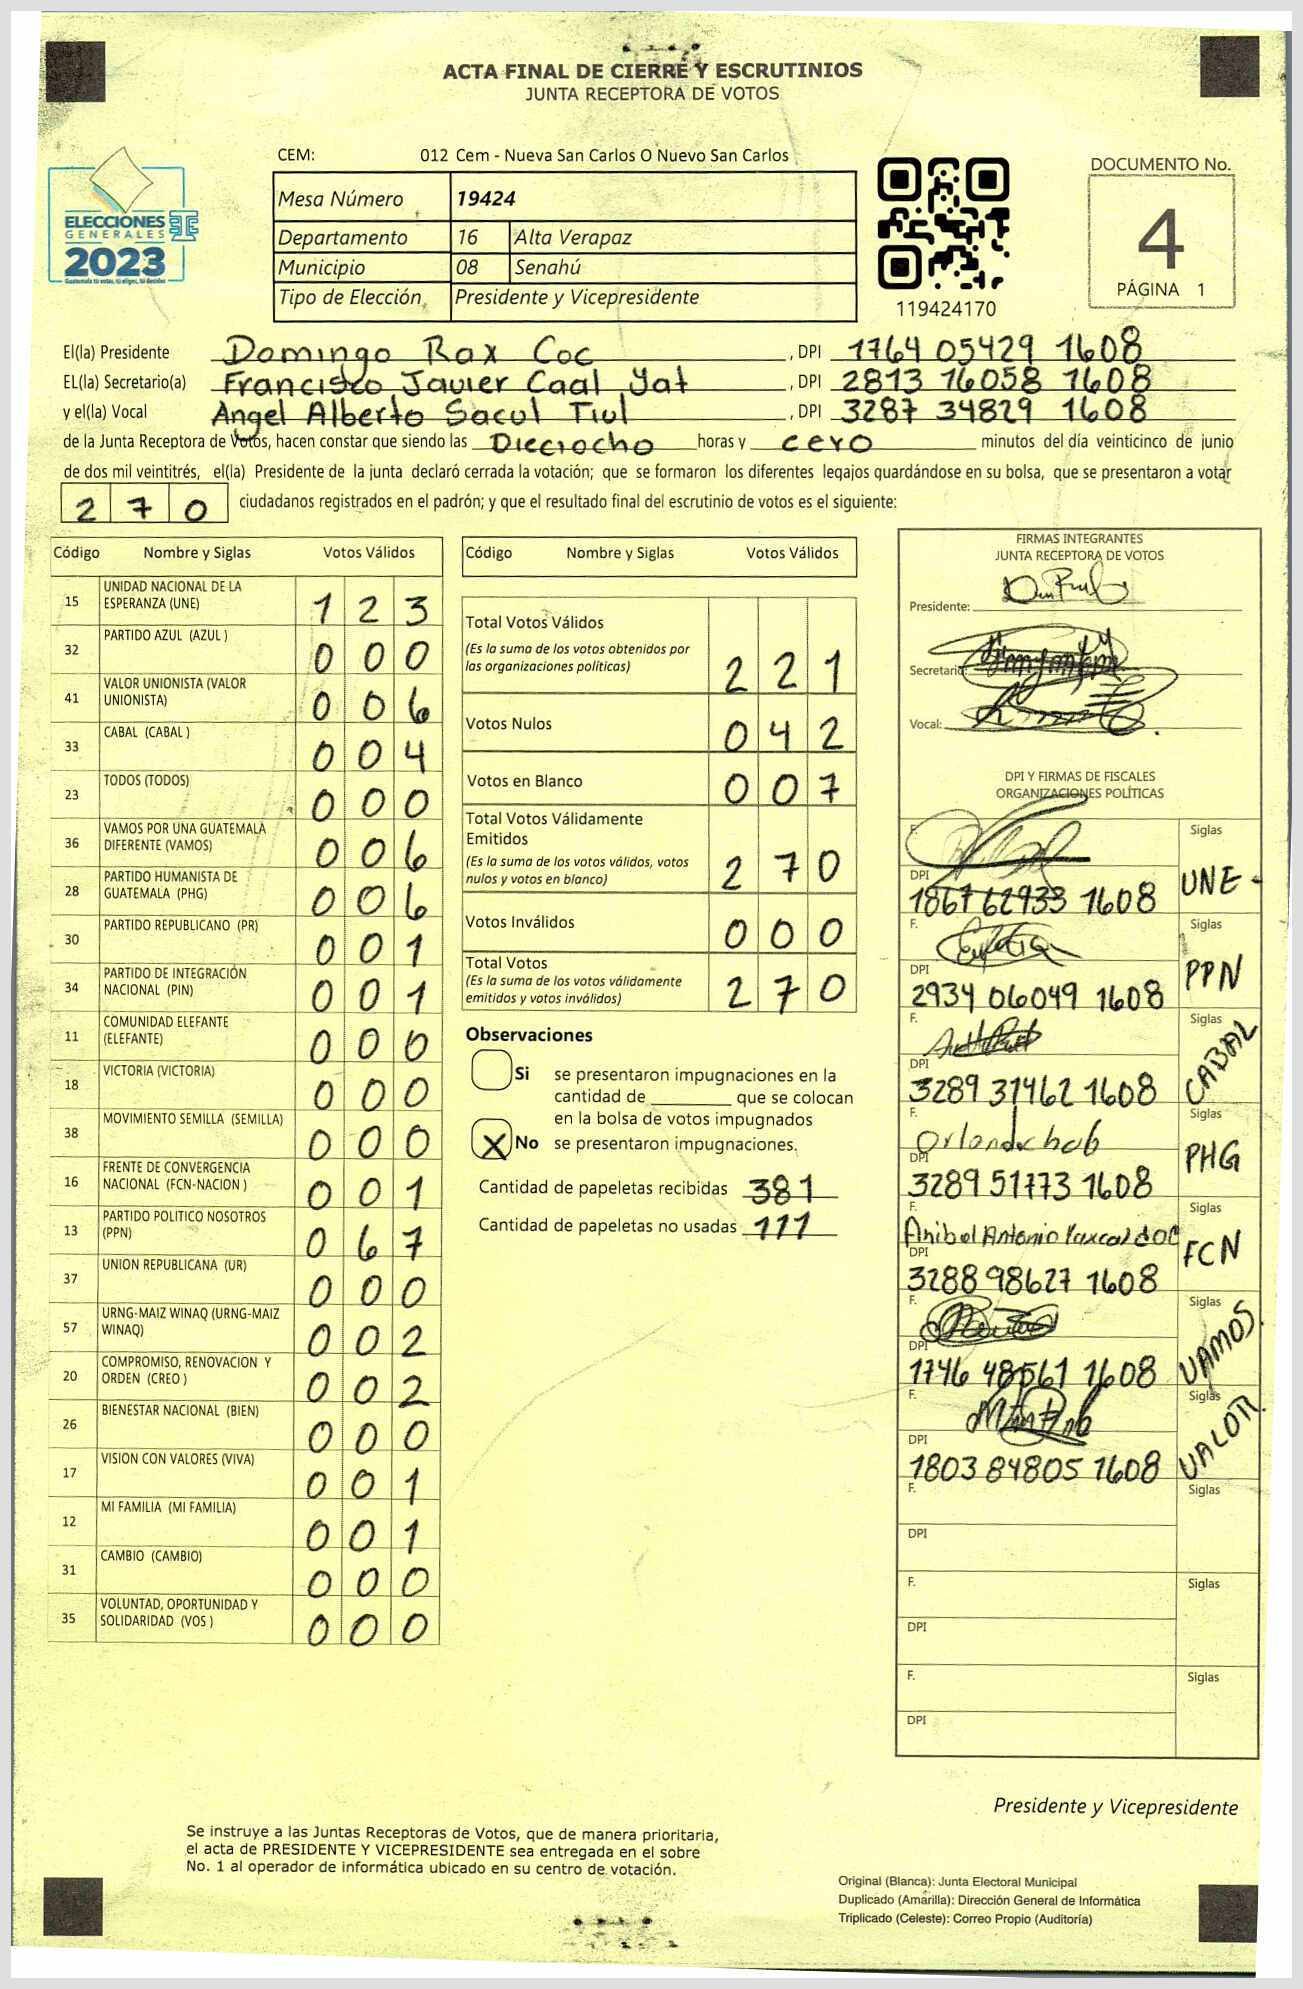 ACTA FINAL DE CIERRE Y ESCRUTINIOS
JUNTA RECEPTORA DE VOTOS
ELECCIONES
GENERALES
2023
Guatemala tú votas, tú eliges, tú decides
CEM: 012 Cem - Nueva San Carlos O Nuevo San Carlos
Mesa Número 19424
Departamento 16 Alta Verapaz
Municipio 08 Senahú
Tipo de Elección Presidente y Vicepresidente
119424170
DOCUMENTO No.
4
PÁGINA 1
El(la) Presidente Domingo Rax Coc , DPI 1764 05429 1608
EL(la) Secretario(a) Francisco Javier Caal Yat , DPI 2813 16058 1608
y el(la) Vocal Angel Alberto Sacul Tiul , DPI 3287 34829 1608
de la Junta Receptora de Votos, hacen constar que siendo las Dieciocho horas y cero minutos del día veinticinco de junio
de dos mil veintitrés, el(la) Presidente de la junta declaró cerrada la votación; que se formaron los diferentes legajos guardándose en su bolsa, que se presentaron a votar
270 ciudadanos registrados en el padrón; y que el resultado final del escrutinio de votos es el siguiente:
Código Nombre y Siglas Votos Válidos
15 UNIDAD NACIONAL DE LA ESPERANZA (UNE) 1 2 3
32 PARTIDO AZUL (AZUL ) 0 0 0
41 VALOR UNIONISTA (VALOR UNIONISTA) 0 0 6
33 CABAL (CABAL ) 0 0 4
23 TODOS (TODOS) 0 0 0
36 VAMOS POR UNA GUATEMALA DIFERENTE (VAMOS) 0 0 6
28 PARTIDO HUMANISTA DE GUATEMALA (PHG) 0 0 6
30 PARTIDO REPUBLICANO (PR) 0 0 1
34 PARTIDO DE INTEGRACIÓN NACIONAL (PIN) 0 0 1
11 COMUNIDAD ELEFANTE (ELEFANTE) 0 0 0
18 VICTORIA (VICTORIA) 0 0 0
38 MOVIMIENTO SEMILLA (SEMILLA) 0 0 0
16 FRENTE DE CONVERGENCIA NACIONAL (FCN-NACION ) 0 0 1
13 PARTIDO POLITICO NOSOTROS (PPN) 0 6 7
37 UNION REPUBLICANA (UR) 0 0 0
57 URNG-MAIZ WINAQ (URNG-MAIZ WINAQ) 0 0 2
20 COMPROMISO, RENOVACION Y ORDEN (CREO ) 0 0 2
26 BIENESTAR NACIONAL (BIEN) 0 0 0
17 VISION CON VALORES (VIVA) 0 0 1
12 MI FAMILIA (MI FAMILIA) 0 0 1
31 CAMBIO (CAMBIO) 0 0 0
35 VOLUNTAD, OPORTUNIDAD Y SOLIDARIDAD (VOS ) 0 0 0
Código Nombre y Siglas Votos Válidos
Total Votos Válidos
(Es la suma de los votos obtenidos por
las organizaciones políticas) 2 2 1
Votos Nulos 0 4 2
Votos en Blanco 0 0 7
Total Votos Válidamente
Emitidos
(Es la suma de los votos válidos, votos
nulos y votos en blanco) 2 7 0
Votos Inválidos 0 0 0
Total Votos
(Es la suma de los votos válidamente
emitidos y votos inválidos) 2 7 0
Observaciones
Si se presentaron impugnaciones en la
cantidad de ________ que se colocan
en la bolsa de votos impugnados
X No se presentaron impugnaciones.
Cantidad de papeletas recibidas 381
Cantidad de papeletas no usadas 111
FIRMAS INTEGRANTES
JUNTA RECEPTORA DE VOTOS
Presidente:
Secretario:
Vocal:
DPI Y FIRMAS DE FISCALES
ORGANIZACIONES POLÍTICAS
F. Siglas
DPI 1867 62933 1608 UNE
F. Siglas
DPI 2934 06049 1608 PPN
F. Siglas
DPI 3289 31462 1608 CABAL
F. Siglas
DPI 3289 51773 1608 PHG
F. Anibal Antonio Siglas
DPI 3288 98627 1608 FCN
F. Siglas
DPI 1746 48561 1608 VAMOS
F. Siglas
DPI 1803 84805 1608 VALOR
F. Siglas
DPI
F. Siglas
DPI
F. Siglas
DPI
Presidente y Vicepresidente
Se instruye a las Juntas Receptoras de Votos, que de manera prioritaria,
el acta de PRESIDENTE Y VICEPRESIDENTE sea entregada en el sobre
No. 1 al operador de informática ubicado en su centro de votación.
Original (Blanca): Junta Electoral Municipal
Duplicado (Amarilla): Dirección General de Informática
Triplicado (Celeste): Correo Propio (Auditoría)